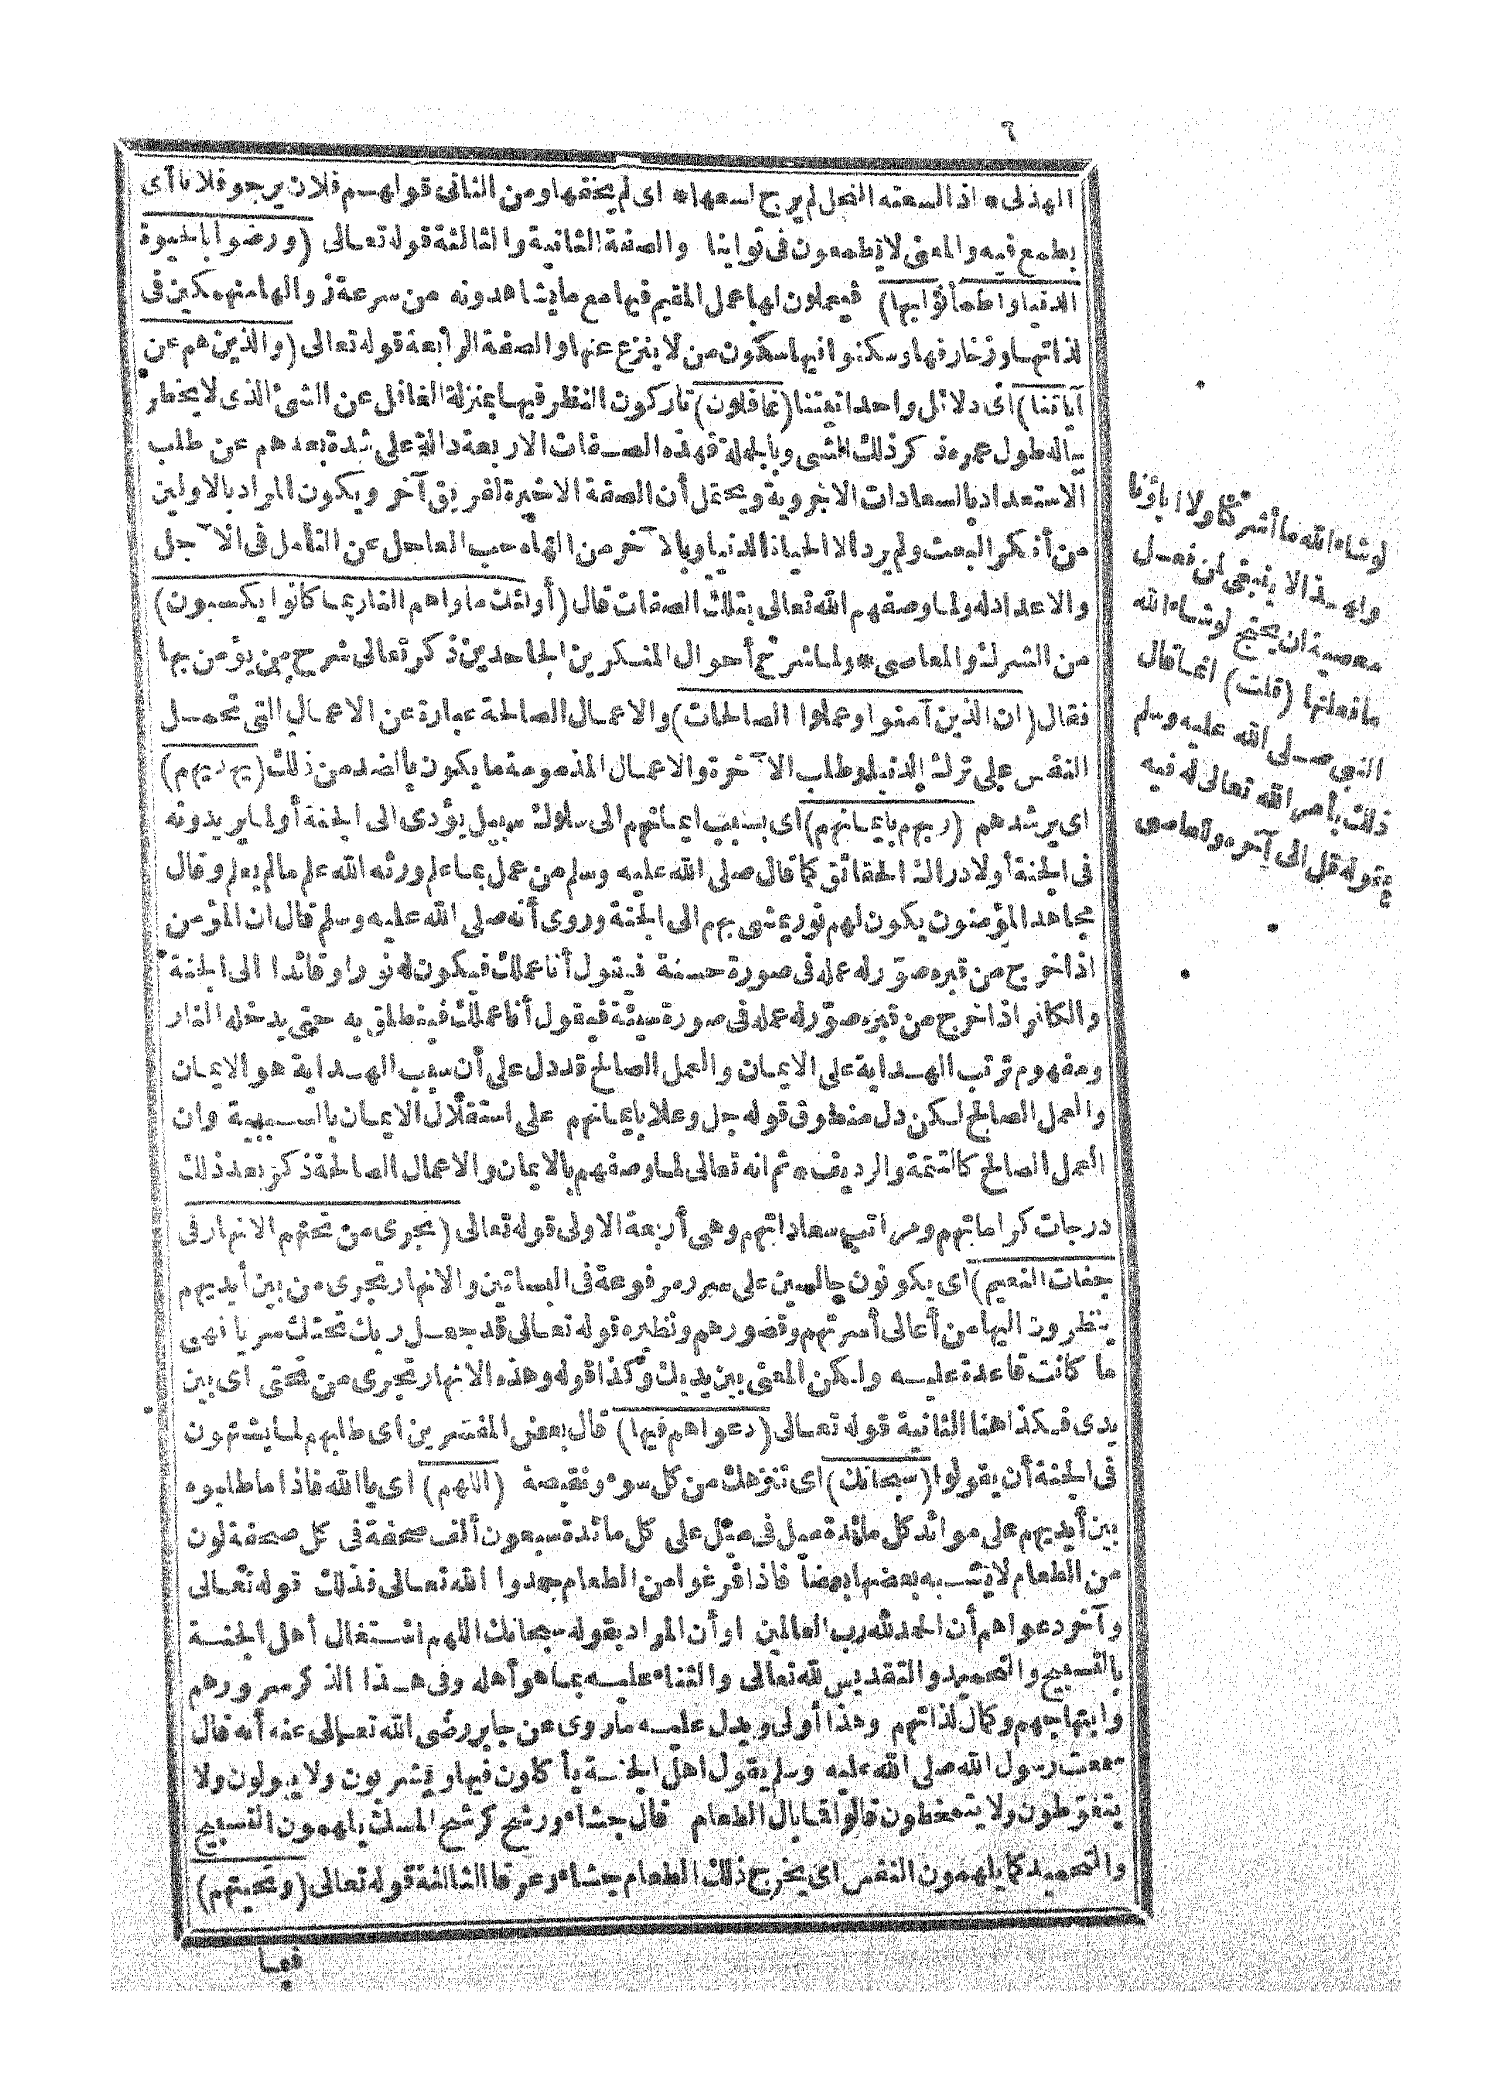 ٦
الهذلى * اذا لسعته النحل لم يرج لسعها * اى لم يخفها ومن الثانى قولهم فلان يرجو فلانا أى
يطمع فيه والمعنى لا يطمعون فى ثوابنا والصفة الثانية والثالثة قوله تعالى (ورضوا بالحيوة
الدنيا واطمأنوا بها) فيعملون لها عمل المقيم فيها مع ما يشاهدونه من سرعة زوالها منهمكين فى
لذاتها وزخارفها وسكنوا فيها سكون من لا ينزعج عنها والصفة الرابعة قوله تعالى (والذين هم عن
آياتنا) أى دلائل وحدانيتنا (غافلون) تاركون النظر فيها بمنزلة الغافل عن الشئ الذى لا يخطر
بباله طول عمره ذكر ذلك الشئ وبالجملة فهذه الصفات الاربعة دالة على شدة بعدهم عن طلب
الاستعداد بالسعادات الاخروية ويحتمل أن الصفة الاخيرة لفريق آخر ويكون المراد بالاولين
من أنكر البعث ولم يرد الا الحياة الدنيا وبالآخر من الهاه حب العاجل عن التأمل فى الآجل
والاعداد له ولما وصفهم الله تعالى بتلك الصفات قال (أولئك مأواهم النار بما كانوا يكسبون)
من الشرك والمعاصى * ولما شرح أحوال المنكرين الجاحدين ذكر تعالى شرح من يؤمن بها
فقال (ان الذين آمنوا وعملوا الصالحات) والاعمال الصالحة عبارة عن الاعمال التى تحمل
النفس على ترك الدنيا وطلب الآخرة والاعمال المذمومة ما يكون بالضد من ذلك (يهديهم)
اى يرشدهم (ربهم بايمانهم) اى بسبب ايمانهم الى سلوك سبيل يؤدى الى الجنة أو لما يريدونه
فى الجنة أو لادراك الحقائق كما قال صلى الله عليه وسلم من عمل بما علم ورثه الله علم ما لم يعلم وقال
مجاهد المؤمنون يكون لهم نور يمشى بهم الى الجنة وروى أنه صلى الله عليه وسلم قال ان المؤمن
اذا خرج من قبره صوّر له عمله فى صورة حسنة فيقول أنا عملك فيكون له نورا وقائدا الى الجنة
والكافر اذا خرج من قبره صوّر له عمله فى صورة سيئة فيقول أنا عملك فينطلق به حتى يدخله النار
ومفهوم ترتب الهداية على الايمان والعمل الصالح قد دل على أن سبب الهداية هو الايمان
والعمل الصالح لكن دل منطوق قوله جل وعلا بايمانهم على استقلال الايمان بالسببية وان
العمل الصالح كالتتمة والرديف * ثم انه تعالى لما وصفهم بالايمان والاعمال الصالحة ذكر بعد ذلك
درجات كراماتهم ومراتب سعاداتهم وهى أربعة الاولى قوله تعالى (تجرى من تحتهم الانهار فى
جنات النعيم) اى يكونون جالسين على سرر مرفوعة فى البساتين والانهار تجرى من بين أيديهم
ينظرون اليها من أعالى أسرتهم وقصورهم ونظيره قوله تعالى قد جعل ربك تحتك سريا فهى
ما كانت قاعدة عليه ولكن المعنى بين يديك وكذا قوله وهذه الانهار تجرى من تحتى اى بين
يدى فكذا هنا الثانية قوله تعالى (دعواهم فيها) قال بعض المفسرين اى طلبهم لما يشتهون
فى الجنة أن يقولوا (سبحانك) اى تنزهك من كل سوء ونقيصة (اللهم) اى يا الله فاذا ما طلبوه
بين أيديهم على موائد كل مائدة ميل فى ميل على كل مائدة سبعون ألف صحفة فى كل صحفة لون
من الطعام لا يشبه بعضها بعضا فاذا فرغوا من الطعام حمدوا الله تعالى فذلك قوله تعالى
وآخر دعواهم أن الحمد لله رب العالمين او أن المراد بقوله سبحانك اللهم اشتغال أهل الجنة
بالتسبيح والتحميد والتقديس لله تعالى والثناء عليه بما هو أهله وفى هذا الذكر سرورهم
وابتهاجهم وكمال لذاتهم وهذا أولى ويدل عليه ما روى عن جابر رضى الله تعالى عنه أنه قال
سمعت رسول الله صلى الله عليه وسلم يقول اهل الجنة يأكلون فيها ويشربون ولا يبولون ولا
يتغوّطون ولا يتمخطون قالوا فما بال الطعام قال جشاء ورشح كرشح المسك يلهمون التسبيح
والتحميد كما يلهمون النفس اى يخرج ذلك الطعام جشاء وعرقا الثالثة قوله تعالى (وتحيتهم)
فيها
لو شاء الله ما أشركنا ولا اباؤنا
ولهذا لا ينبغى لمن فعل
معصية ان يحتج لو شاء الله
ما فعلتها (قلت) انما قال
النبى صلى الله عليه وسلم
ذلك بأمر الله تعالى له فيه
بقوله قل الى آخره والعاصى